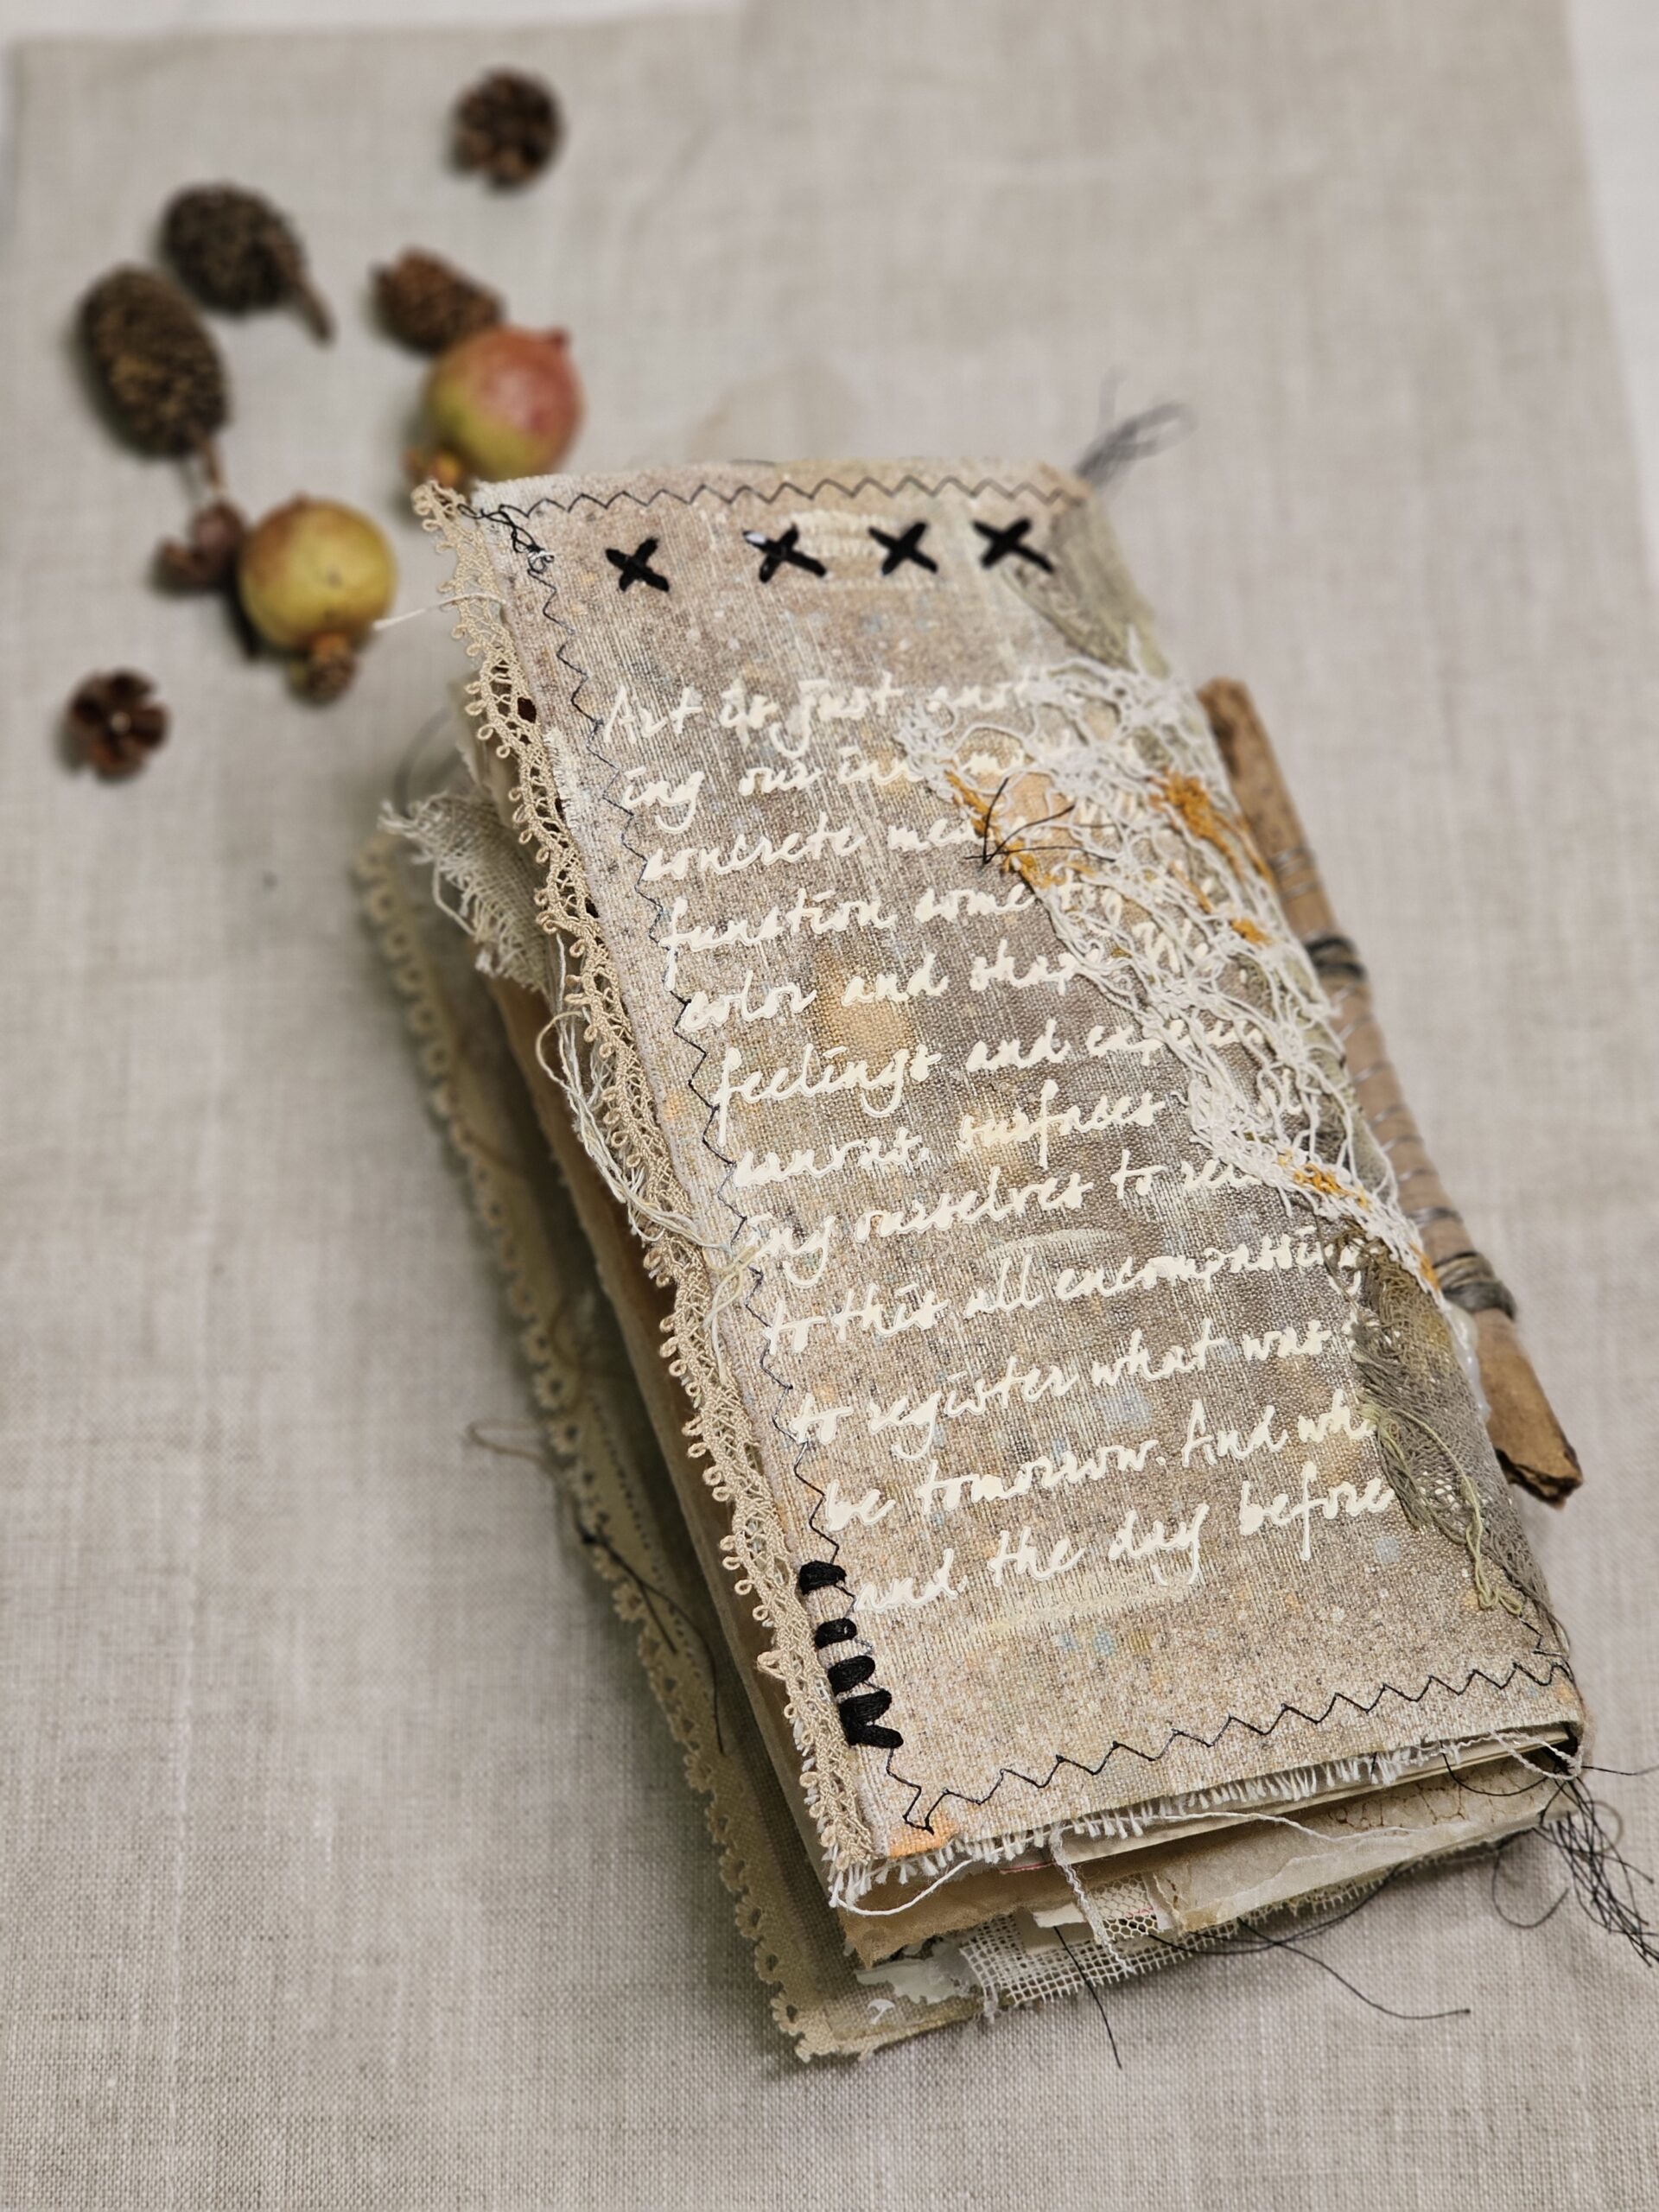 Art is just
ing our
concrete
function come
color and
feelings and
canvas. surfaces
ing ourselves to
to this all encompassing
to register what was
be tomorrow. And
and. the day before